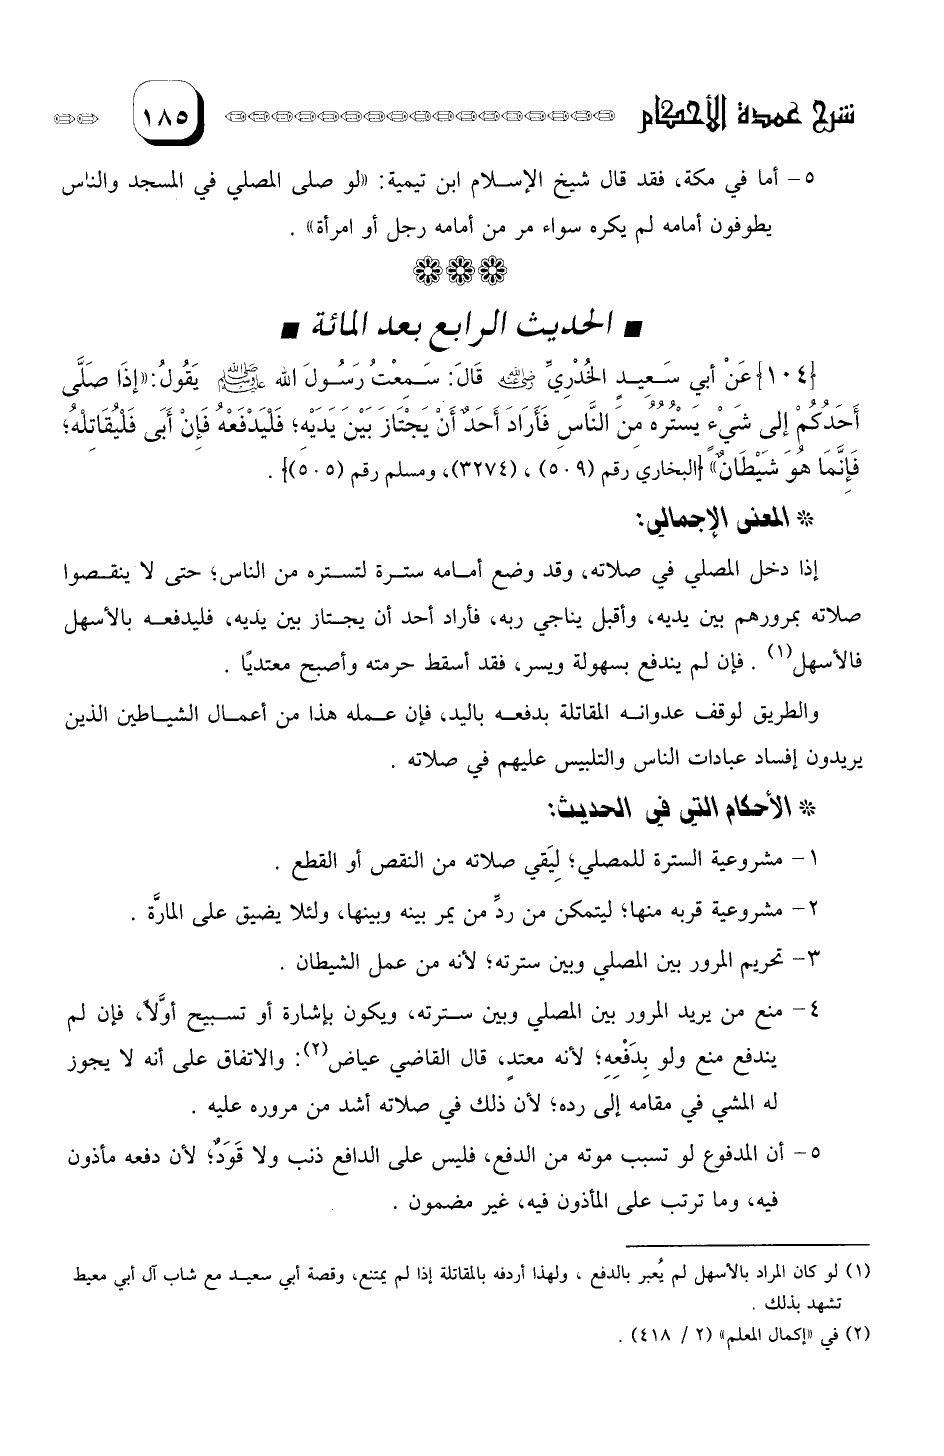 شرح عمدة الأحكام ١٨٥
٥- أما في مكة، فقد قال شيخ الإسلام ابن تيمية: «لو صلى المصلي في المسجد والناس
يطوفون أمامه لم يكره سواء مر من أمامه رجل أو امرأة» .
■ الحديث الرابع بعد المائة ■
{١٠٤} عَنْ أبي سَعِيدٍ الخُدْرِيِّ رضي الله عنه قَالَ: سَمِعْتُ رَسُولَ الله ﷺ يَقُولُ: «إذَا صَلَّى
أَحَدُكُمْ إلى شَيْءٍ يَسْتُرُهُ مِنَ النَّاسِ فَأَرَادَ أَحَدٌ أَنْ يَجْتَازَ بَيْنَ يَدَيْهِ؛ فَلْيَدْفَعْهُ فَإِنْ أَبَى فَلْيُقَاتلْهُ؛
فَإِنَّمَا هُوَ شَيْطَانٌ» {البخاري رقم (٥٠٩) ، (٣٢٧٤)، ومسلم رقم (٥٠٥)} .
* المعنى الإجمالي:
إذا دخل المصلي في صلاته، وقد وضع أمامه سترة لتستره من الناس؛ حتى لا ينقصوا
صلاته بمرورهم بين يديه، وأقبل يناجي ربه، فأراد أحد أن يجتاز بين يديه، فليدفعه بالأسهل
فالأسهل(١) . فإن لم يندفع بسهولة ويسر، فقد أسقط حرمته وأصبح معتديًا .
والطريق لوقف عدوانه المقاتلة بدفعه باليد، فإن عمله هذا من أعمال الشياطين الذين
يريدون إفساد عبادات الناس والتلبيس عليهم في صلاته .
* الأحكام التي في الحديث:
١- مشروعية السترة للمصلي؛ لِيَقي صلاته من النقص أو القطع .
٢- مشروعية قربه منها؛ ليتمكن من ردِّ من يمر بينه وبينها، ولئلا يضيق على المارَّة .
٣- تحريم المرور بين المصلي وبين سترته؛ لأنه من عمل الشيطان .
٤- منع من يريد المرور بين المصلي وبين سترته، ويكون بإشارة أو تسبيح أوَّلاً، فإن لم
يندفع منع ولو بِدَفْعِهِ؛ لأنه معتدٍ، قال القاضي عياض(٢): والاتفاق على أنه لا يجوز
له المشي في مقامه إلى رده؛ لأن ذلك في صلاته أشد من مروره عليه .
٥- أن المدفوع لو تسبب موته من الدفع، فليس على الدافع ذنب ولا قَوَدٌ؛ لأن دفعه مأذون
فيه، وما ترتب على المأذون فيه، غير مضمون .
(١) لو كان المراد بالأسهل لم يُعبر بالدفع ، ولهذا أردفه بالمقاتلة إذا لم يمتنع، وقصة أبي سعيد مع شاب آل أبي معيط
تشهد بذلك .
(٢) في «إكمال المعلم» (٢ / ٤١٨) .